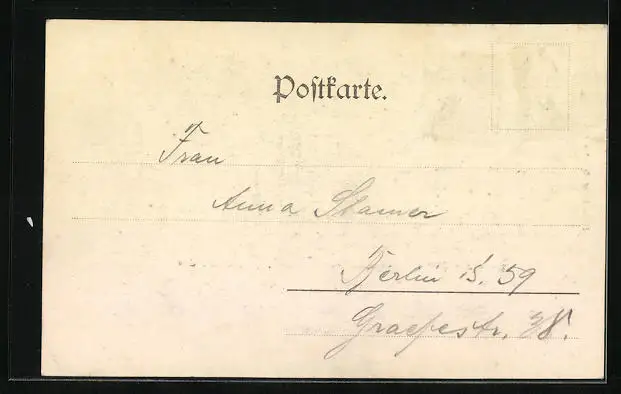 Postkarte.
Frau
Anna Stamer
Berlin S. 59
Graefestr. 38.